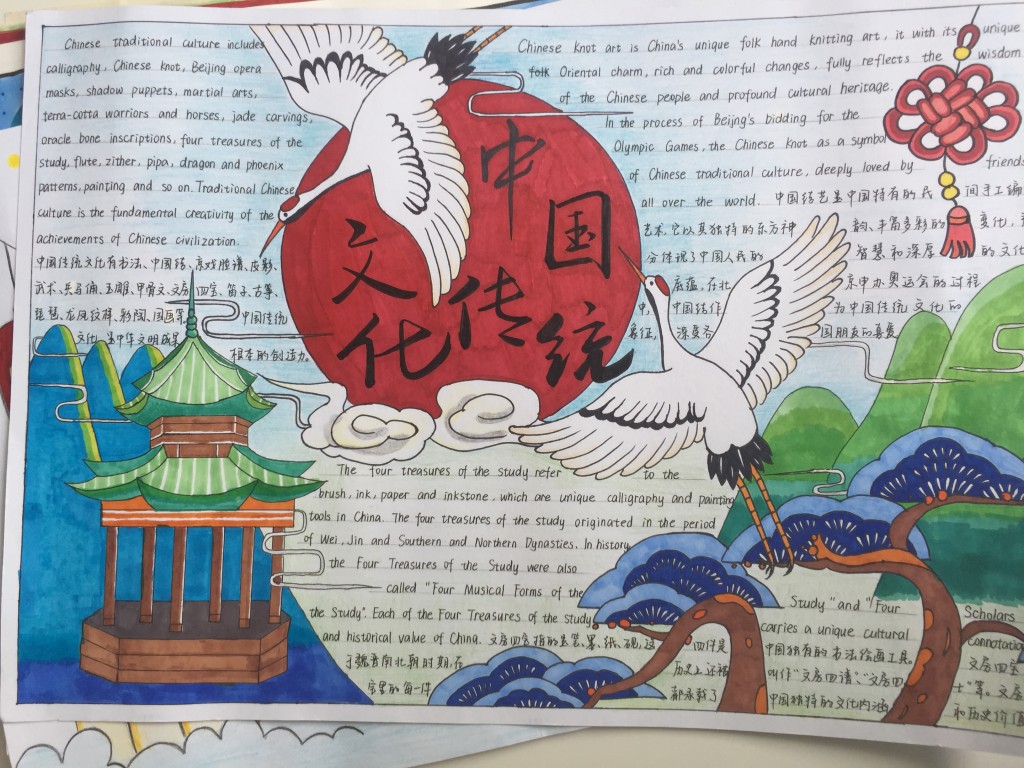 Chinese traditional culture includes
calligraphy, Chinese knot, Beijing opera
masks, shadow puppets, martial arts,
terra-cotta warriors and horses, jade carvings,
oracle bone inscriptions, four treasures of the
study, flute, zither, pipa, dragon and phoenix
patterns, painting and so on. Traditional Chinese
culture is the fundamental creativity of the
achievements of Chinese civilization.
中国传统文化有书法、中国结、京戏脸谱、皮影、
武术、兵马俑、玉雕、甲骨文、文房四宝、笛子、古筝、
琵琶、龙凤纹样、彩陶、国画等。中国传统
文化是中华文明成果
根本的创造力。
中国
传统
文化
Chinese knot art is China's unique folk hand knitting art, it with its unique
folk Oriental charm, rich and colorful changes, fully reflects the wisdom
of the Chinese people and profound cultural heritage.
In the process of Beijng's bidding for the
Olympic Games, the Chinese knot as a symbol
of Chinese traditional culture, deeply loved by friends
all over the world. 中国结艺是中国特有的民间手工编
艺术,它以其独特的东方神韵、丰富多彩的变化,
分体现了中国人民的智慧和深厚的文化
底蕴。在北京申办奥运会的过程
中,中国结作为中国传统文化的
象征,深受各国朋友的喜爱
The four treasures of the study refer to the
brush, ink, paper and inkstone, which are unique calligraphy and painting
tools in China. The four treasures of the study originated in the period
of Wei, Jin and Southern and Northern Dynasties. In history,
the Four Treasures of the Study were also
called "Four Musical Forms of the Study" and "Four Scholars
the Study". Each of the Four Treasures of the Study carries a unique cultural connotation
and historical value of China. 文房四宝指的是笔、墨、纸、砚,这四件是中国独有的书法绘画工具。文房四宝
于魏晋南北朝时期,在历史上还被叫作"文房四谱"、"文房四士"等。文房
宝里的每一件都承载了中国独特的文化内涵和历史价值